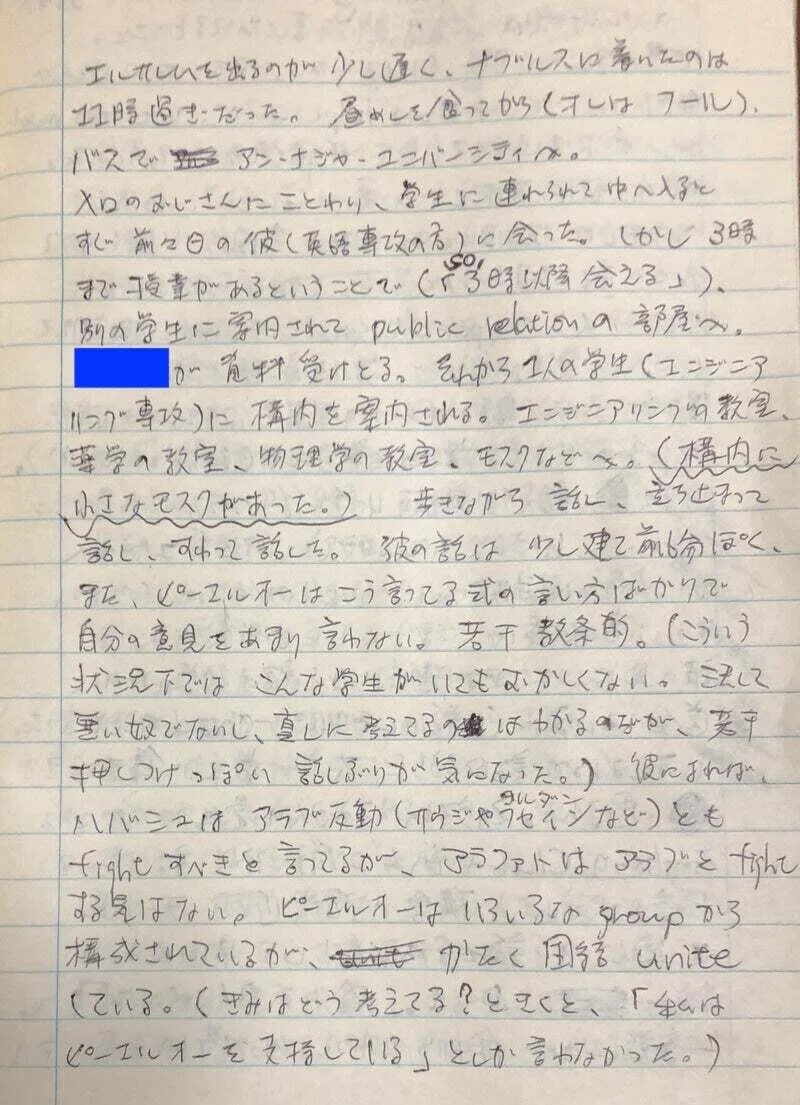 エルサレムを出るのが少し遅く、ナブルスに着いたのは
11時過ぎだった。昼めしを食ってから(オレはフール)、
バスでアン・ナジャー・ユニバーシティへ。
入口のおじさんにことわり、学生に連れられて中へ入ると
すぐ前々日の彼(英語専攻の方)に会った。しかし3時
まで授業があるということで(「3時以降会える」)、
別の学生に案内されて public relation の部屋へ。
が資料受けとる。それから1人の学生(エンジニア
リング専攻)に構内を案内される。エンジニアリングの教室、
薬学の教室、物理学の教室、モスクなどへ。(構内に
小さなモスクがあった。) 歩きながら話し、立ち止まって
話し、すわって話した。彼の話は少し建て前ぽく、
また、ピーエルオーはこう言ってる式の言い方ばかりで
自分の意見をあまり言わない。若干教条的。(こういう
状況下ではこんな学生がいてもおかしくない。決して
悪い奴でないし、真しに考えてるのはわかるのだが、若干
押しつけっぽい話しぶりが気になった。) 彼によれば、
ハバシュはアラブ反動(サウジやヨルダンフセインなど)とも
fightすべきと言ってるが、アラファトはアラブとfight
する気はない。ピーエルオーはいろいろなgroupから
構成されているが、かたく団結 unite
している。(きみはどう考えてる?ときくと、「私は
ピーエルオーを支持している」としか言わなかった。)